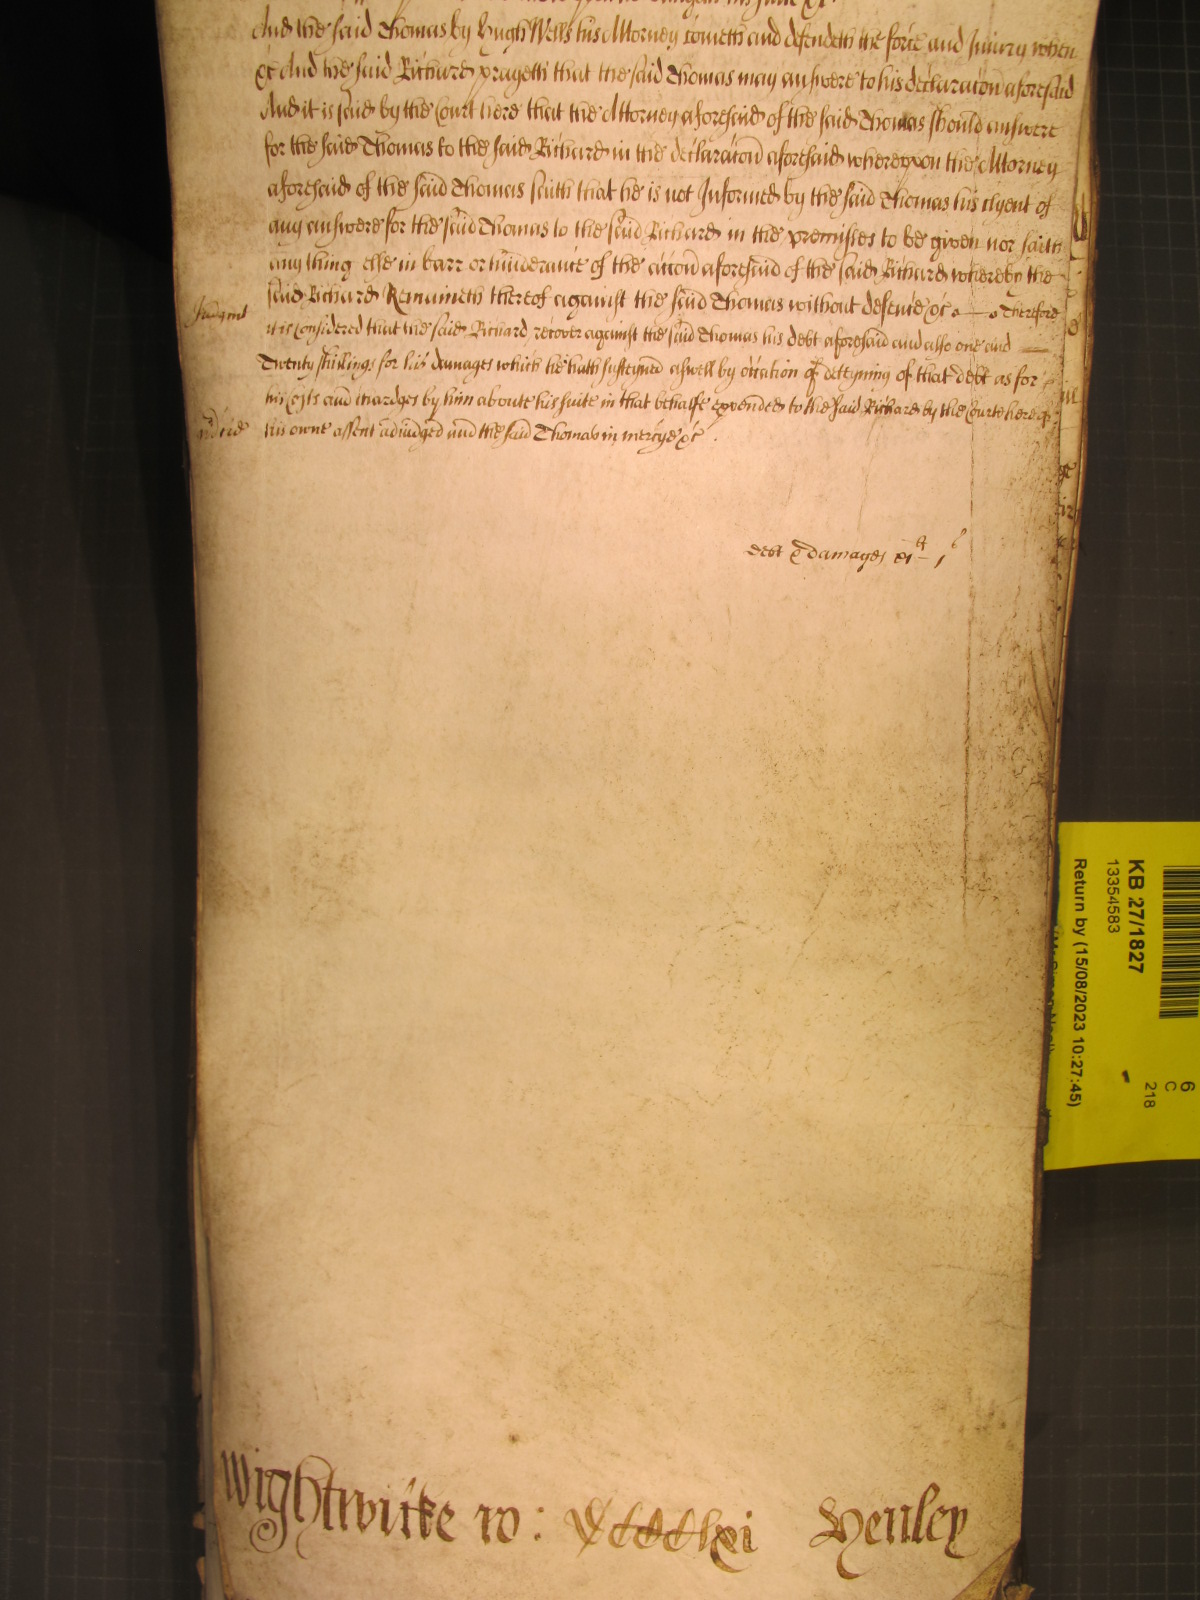 And the said Thomas by Hugh Wells his Attorney cometh and defendeth the force and Iniury when
&c And the said Richard prayeth that the said Thomas may answere to his declaracon aforesaid
And it is said by the Court here that the Attorney aforesaid of the said Thomas should answere
for the said Thomas to the said Richard in the declaracon aforesaid whereupon the Attorney
aforesaid of the said Thomas saith that he is not Informed by the said Thomas his clyent of
any answere for the said Thomas to the said Richard in the premisses to be given nor saith
any thing else in barr or hinderance of the accon aforesaid of the said Richard whereby the
said Richard Remaineth thereof against the said Thomas without defence &c Therefore
Judgmt
it is considered that the said Richard recover against the said Thomas his debt aforesaid and also one and
Twenty shillings for his damages which he hath susteyned aswell by occasion of deteyning of that debt as for
his costs and chardges by him about his suite in that behalfe expended to the said Richard by the Courte here of
his owne assent adiudged and the said Thomas in mercye &c
debt & damages xi
Wightwicke ro: lxi Henley
KB 27/1827
13354583
Return by (15/08/2023 10:27:45)
6
C
218